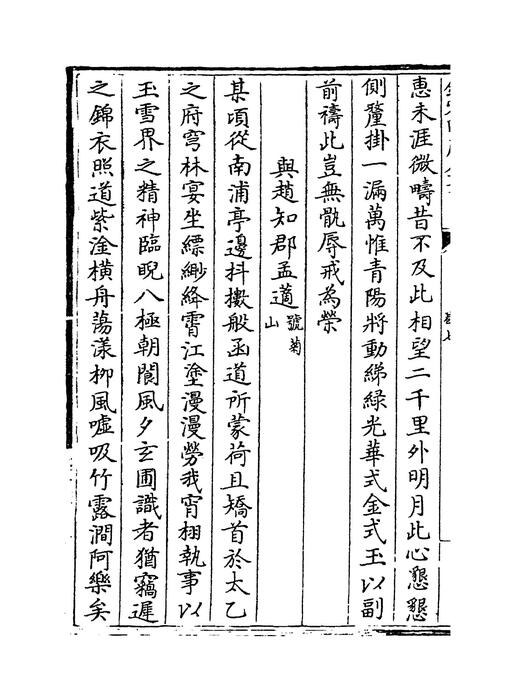 惠未涯微疇昔不及此相望二千里外明月此心懇懇
側釐掛一漏萬惟青陽將動綈緑光華式金式玉以副
前禱此豈無骩辱戒為榮
與趙知郡孟藡號菊山
某頃從南浦亭邊抖擻般函道所蒙荷且矯首於太乙
之府穹林宴坐縹緲絳霄江塗漫漫勞我宵栩執事以
玉雪界之精神臨睨八極朝閬風夕玄圃識者猶竊遲
之錦衣照道紫淦横舟蕩漾柳風噓吸竹露澗阿樂矣